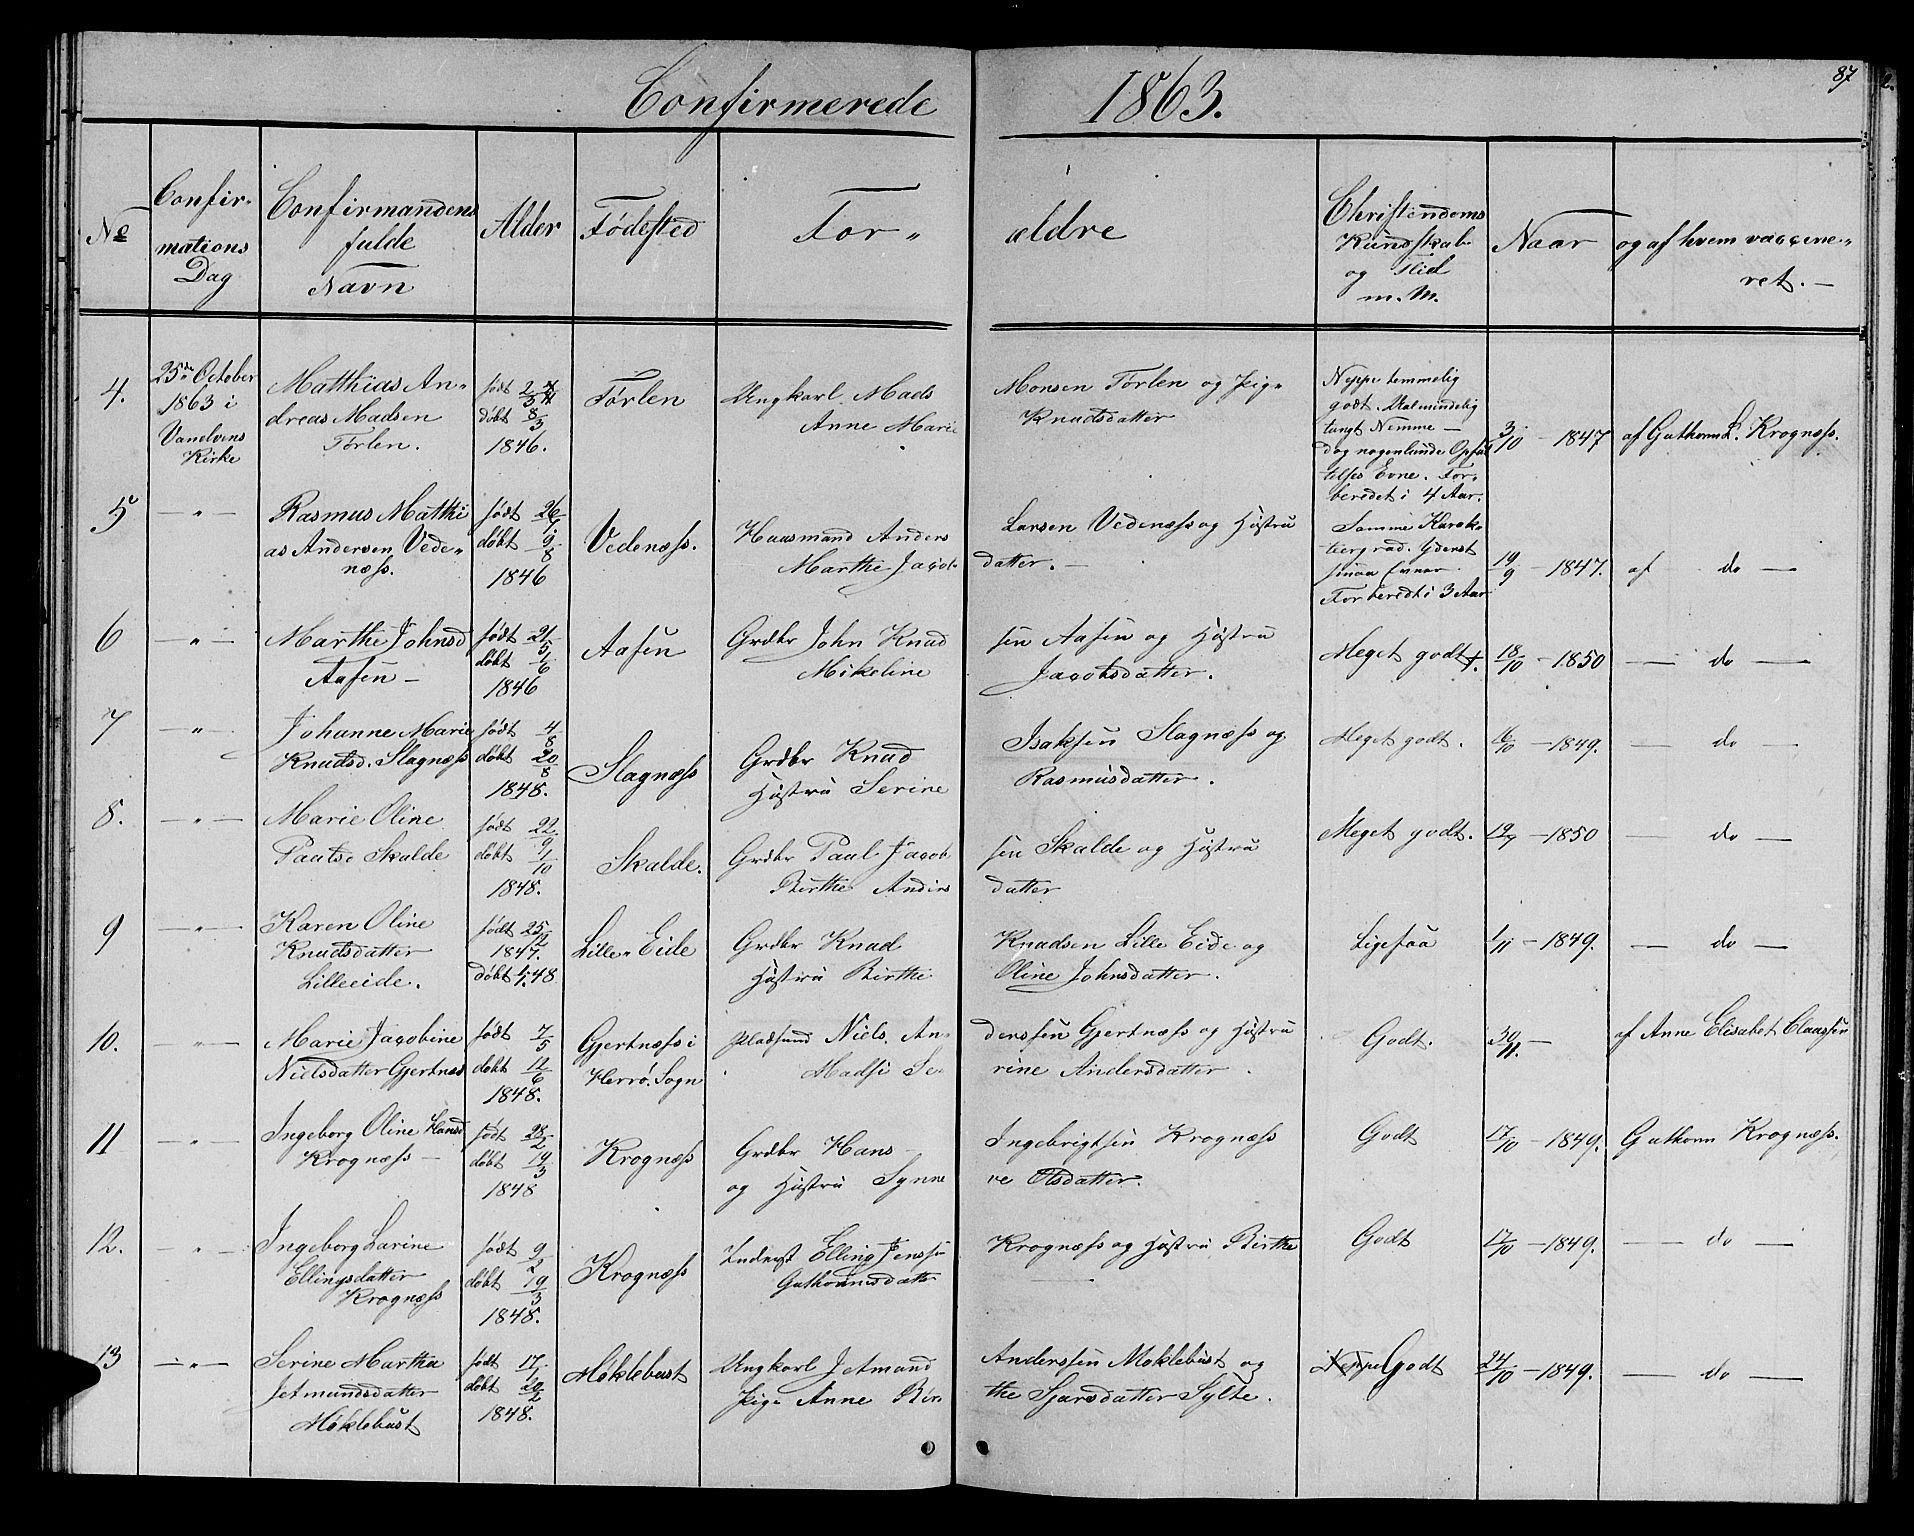 87
Confirmerede 1863.
No
Confir-
mations
Dag
Confirmandens
fulde
Navn
Alder
Fødested
For„
ældre
Christendoms
Kundskab
og Flid
m. M.
Naar
og af hvem vaccine„
ret. —
4.
25de October
1863 i
Vanelvens
Kirke
Matthias An„
dreas Madsen
Tørlen.
født
døbt 8/3
1846.
Tørlen
Ungkarl Mads
Anne Marie
Monsen Tørlen og Pige
Knudsdatter
Neppe temmelig
godt. Ualmindelig
tungt Nemme —
dog nogenlunde Opfat
telses Evne. For„
beredet i 4 Aar.
3/10 – 1847
af Guthorm L. Krognæss.
5
— „ —
Rasmus Matthi
as Andersen Vede„
næss.
født 26/7
døbt 9/8
1846
Vedenæss.
Huusmand Anders
Marthe Jacob„
Larsen Vedenæss og Hustru
datter. —
Samme Karak„
teergrad. Yderst
smaa Evner.
Forberedt i 3 Aar
19/9 – 1847.
af do —
6
— „ —
Marthe Johnsd
Aasen —
født 21/5
døbt 1/6
1846
Aasen
Grdbr John Knud
Mikeline
sen Aasen og Hustru
Jacobsdatter.
Meget godt.
18/10 – 1850
— do —
7
— „ —
Johanne Marie
Knudsd. Slagnæss
født 4/8
døbt 20/8
1848.
Slagnæss
Grdbr Knud
Hustru Serine
Isaksen Slagnæss og
Rasmusdatter.
Meget godt.
16/10 – 1849.
— do —
8.
— „ —
Marie Oline
Paulsd Skalde
født 22/9
døbt 1/10
1848.
Skalde.
Grdbr Paul Jacob
Birthe Anders
sen Skalde og Hustru
datter
Meget godt.
– 1850
— do —
9
— „ —
Karen Oline
Knudsdatter
Lilleeide.
født 25/12
1847.
døbt 48
Lille„ Eide
Grdbr Knud
Hustru Birthe
Knudsen Lille Eide og
Oline Johnsdatter.
Ligesaa
1/11 – 1849.
— do —
10.
— „ —
Marie Jacobine
Nielsdatter Gjertnæs
født 7/5
døbt 12/6
1848.
Gjertnæss i
Herrø. Sogn
Pladsmd Niels An-
Madsi Se-
derssen Gjertnæss og Hustru
rine Andersdatter.
Godt.
30/11. —
af Anne Elisabet Claassen
11
— „ —
Ingeborg Oline Hansd
Krognæss —
født 28/2
døbt 19/3
1848
Krognæss
Grdbr Hans —
og Hustru Synne
Ingebrigtsen Krognæss
ve Olsdatter.
Godt
17/10 – 1849.
Guthorm Krognæss.
12.
— „ —
Ingeborg Larine
Ellingsdatter
Krognæss
født 9/2
døbt 19/3
1848.
Krognæss
Inderst Elling Jenssen
Guthormsdatter
Krognæss og Hustru Birthe
Godt
17/10 – 1849.
— do —
13
— „ —
Serine Martha
Jetmundsdatter
Møklebust
født 17/1
døbt 20/2
1848.
Møklebust
Ungkarl Jetmund
Pige Anne Bir
Anderssen Møklebust og
the Sjursdatter Sylte.
Neppe Godt
24/10 – 1849.
— do —